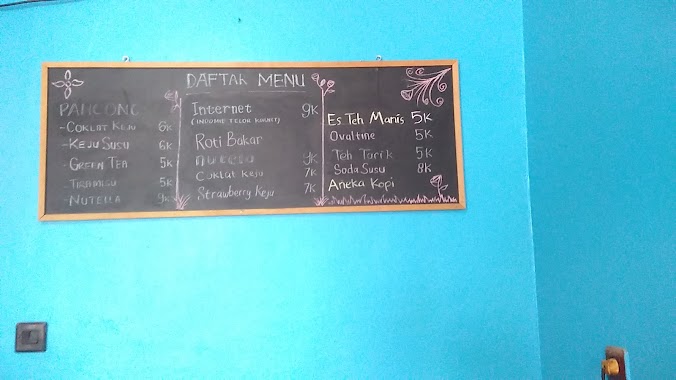 DAFTAR MENU
PANCONG
- COKLAT KEJU 6K
- KEJU SUSU 6K
- GREEN TEA 5K
- TIRAMISU 5K
- NUTELLA 9K
Internet 9K
(INDOMIE TELOR KORNET)
Roti Bakar
Nutella 9K
Coklat Keju 7K
Strawberry Keju 7K
Es Teh Manis 5K
Ovaltine 5K
Teh Tarik 5K
Soda Susu 8K
Aneka Kopi